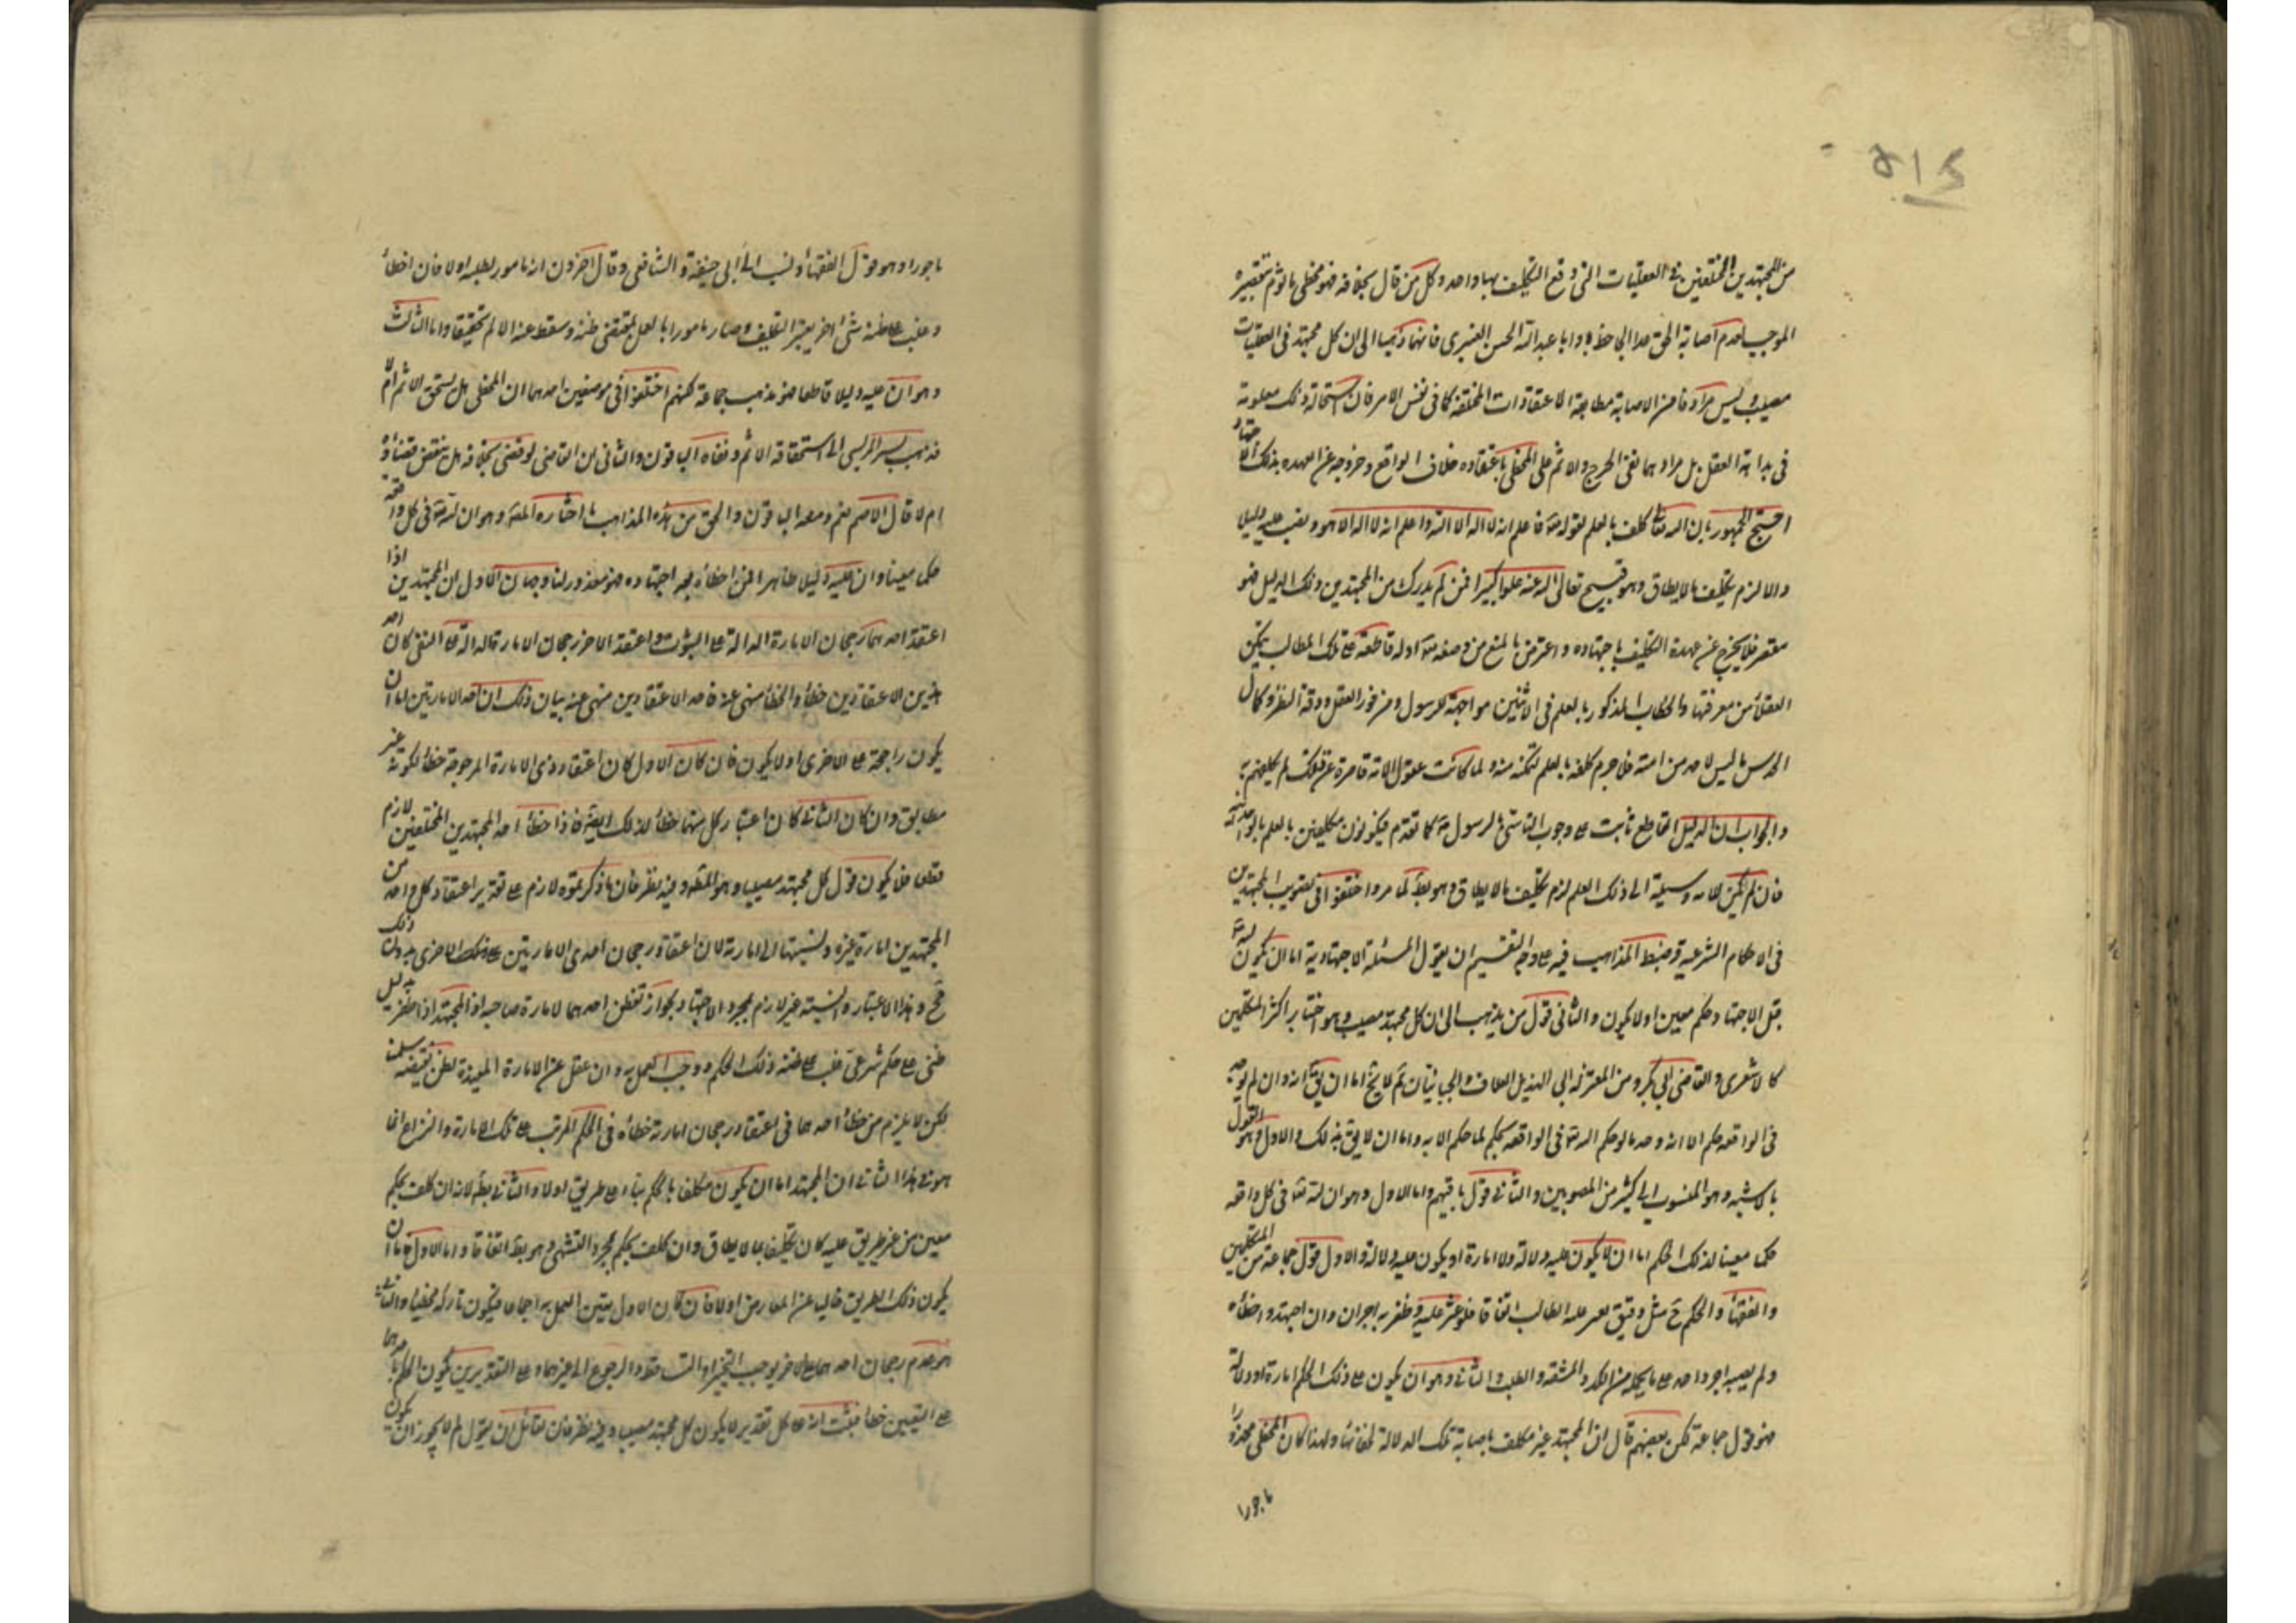 ٥١٤
من المجتهدين المختلفين في العقليات التي وقع التكليف بها واحد وكل من قال بخلافه فهو مخطئ مأثوم لتقصيره
الموجب لعدم اصابة الحق عدا ابي حظ وابا عبد الله الحسن العنبري فانهما ذهبا الى ان كل مجتهد في العقليات
مصيب وليس مرادهما من الاصابة مطابقة الاعتقادات المختلفة كما في نفس الامر فان استحالة ذلك معلومة
في بداية العقل بل مرادهما نفى الحرج والاثم على المخطى باعتقاده خلاف الواقع وخروجه عن العهدة بذلك الاعتقاد
احتج الجمهور بان الله تعالى كلف بالعلم لقوله تع فاعلم انه لا اله الا الله واعلم انه لا اله الا هو ونصب عليه دليلا
والا لزم تكليف ما لا يطاق وهو قبيح تعالى الله عنه علوا كبيرا فمن لم يدرك من المجتهدين ذلك الدليل فهو
مقصر فلا يخرج عن عهدة التكليف باجتهاده واعترض بالمنع من وضعه تع ادلة قاطعة على تلك المطالب يتمكن
العقلاء من معرفتها والخطاب المذكور بالعلم في الاثنين مواجهة للرسول ومن فور العقل ودقة النظر وكمال
الحدس ما ليس لاحد من امته فلا جرم كلفه بالعلم لتمكنه منه ولما كانت عقول الامة قاصرة عن ذلك لم يكلفهم به
والجواب ان الدليل القاطع ثابت على وجوب التاسي بالرسول ص كما تقدم فيكونون مكلفين بالعلم بالوحدانية
فان لم يكن للامة وسيلة الى ذلك العلم لزم تكليف ما لا يطاق وهو بط لما مر واختلفوا في تصويب المجتهدين
في الاحكام الشرعية وضبط المذاهب فيه على وجه التقسيم ان يقول المسئلة الاجتهادية اما ان يكون لله تع
قبل الاجتهاد حكم معين او لا يكون والثاني قول من يذهب الى ان كل مجتهد مصيب وهو اختيار اكثر المتكلمين
كالاشعري والقاضي ابي بكر ومن المعتزلة ابي الهذيل العلاف والجبائيان ثم لا يخ اما ان يق انه وان لم يوجد
في الواقعة حكم الا انه وجد ما لو حكم الله تع في الواقعة بحكم لما حكم الا به واما ان لا يق بذلك والاول هو القول
بالاشبه وهو المنسوب الى كثير من المصوبين والثاني قول باقيهم واما الاول وهو ان لله تعا في كل واقعة
حكما معينا لذلك الحكم اما ان لا يكون عليه دلالة ولا امارة او يكون عليه دلالة والاول قول جماعة من المتكلمين
والفقهاء والحكم ح مثل دفين يعثر عليه الطالب اتفاقا فلو عثر عليه وظفر به اجران وان اجتهد واخطاه
ولم يصبه اجر واحد على ما يحمله من الكد والمشقة والطلب والثاني وهو ان يكون على ذلك الحكم امارة او دلالة
فهو قول جماعة لكن بعضهم قال ان المجتهد غير مكلف باصابة تلك الدلالة لخفائها ولهذا كان المخطى معذورا
ماجورا
ماجورا وهو قول الفقهاء ونسب الى ابي حنيفة والشافعي وقال اخرون انه مامور بطلبه اولا فان اخطأ
وغلب على ظنه شئ اخر يعتبر التكليف وصار مامورا بالعمل بمقتضى ظنه وسقط عنه الاثم تحقيقا واما الثالث
وهو ان عليه دليلا قاطعا فهو مذهب جماعة لكنهم اختلفوا في موضعين احدهما ان المخطى هل يستحق الاثم ام لا
فذهب بشر المريسى الى استحقاقه الاثم ونفاه الباقون والثاني ان القاضي لو قضى بخلافه هل ينقض قضاؤه
ام لا قال الاصم نعم ومنعه الباقون والحق من هذه المذاهب ما اختاره المص وهو ان لله تع في كل واقعة
حكما معينا وان عليه دليلا ظاهرا فمن اخطأه بعد اجتهاده فهو معذور لنا وجهان الاول ان المجتهدين اذا
اعتقد احدهما رجحان الامارة الدالة على الثبوت واعتقد الاخر رجحان الامارة الدالة على النفى كان احد
هذين الاعتقادين خطأ والخطأ منهى عنه فاحد الاعتقادين منهى عنه بيان ذلك ان احد الامارتين اما ان
يكون راجحة على الاخرى او لا يكون فان كان الاول كان اعتقاد ذى الامارة المرجوحة خطأ لكونه غير
مطابق وان كان الثاني كان اعتبار كل منهما خطأ لذلك ايضا فاذا خطأ احد المجتهدين المختلفين لازم
قطعا فلا يكون قول كل مجتهد مصيب وهو المط وفيه نظر فان ما ذكرتموه لازم على تقدير اعتقاد كل واحد من
المجتهدين امارة غيره ونسبتها الى امارته لان اعتقاد رجحان احدى الامارتين على الاخرى بدون ذلك
مح وهذا الاعتبار والنسبة غير لازم بمجرد الاجتهاد بجواز تفطن احدهما لامارة صاحبه اذ المجتهد اذا ظفر بدليل
ظنى على حكم شرعى غلب على ظنه ذلك الحكم ووجب العمل به وان غفل عن الامارة المفيدة لظن نقيضه سلمنا
لكن لا يلزم من خطأ احدهما في اعتقاد رجحان امارته خطأه في الحكم المرتب على تلك الامارة والنزاع انما
هو في هذا الثاني ان المجتهد اما ان يكون مكلفا بالحكم بناء على طريق اولا والثاني بط لانه ان كلف بحكم
معين من غير طريق عليه كان تكليفا بما لا يطاق وان كلف بحكم بمجرد التشهى وهو بط اتفاقا واما الاول فاما ان
يكون ذلك الطريق خاليا عن المعارض اولا فان كان الاول يتعين العمل به اجماعا فيكون تاركه مخطيا والثاني
هو عدم رجحان احدهما على الاخر يوجب التخيير او التساقط والرجوع الى غيرهما وعلى التقديرين يكون الحكم باحدهما
على التعيين خطأ فثبت انه على كل تقدير لا يكون كل مجتهد مصيب وفيه نظر فان لقائل ان يقول لم لا يجوز ان يكون